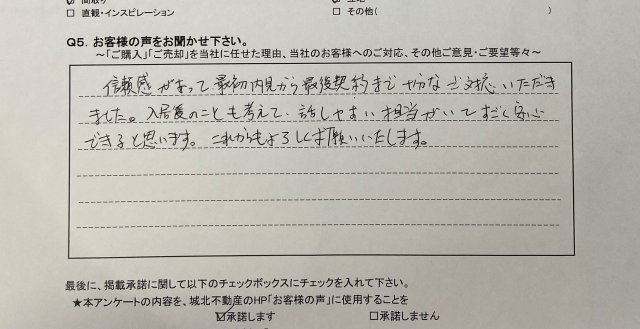 間取り
□ 直観・インスピレーション
□ その他( )
Q5. お客様の声をお聞かせ下さい。
～「ご購入」「ご売却」を当社に任せた理由、当社のお客様へのご対応、その他ご意見・ご要望等々～
信頼感があって最初内見から最後契約まで 大切なご対応いただき
ました。入居後のことも考えて、話しやすい担当がいてすごく安心
できると思います。これからもよろしくお願いいたします。
最後に、掲載承諾に関して以下のチェックボックスにチェックを入れて下さい。
★本アンケートの内容を、城北不動産のHP「お客様の声」に使用することを
☑承諾します □承諾しません